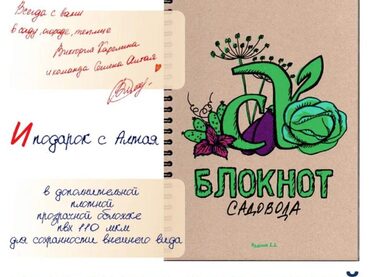 Всегда с вами
в саду, огороде, теплице
Виктория Карелина
и команда Семена Алтая
И подарок с Алтая
в дополнительной
плотной
прозрачной обложке
пвх 110 мкм
для сохранности внешнего вида
са
БЛОКНОТ
САДОВОДА